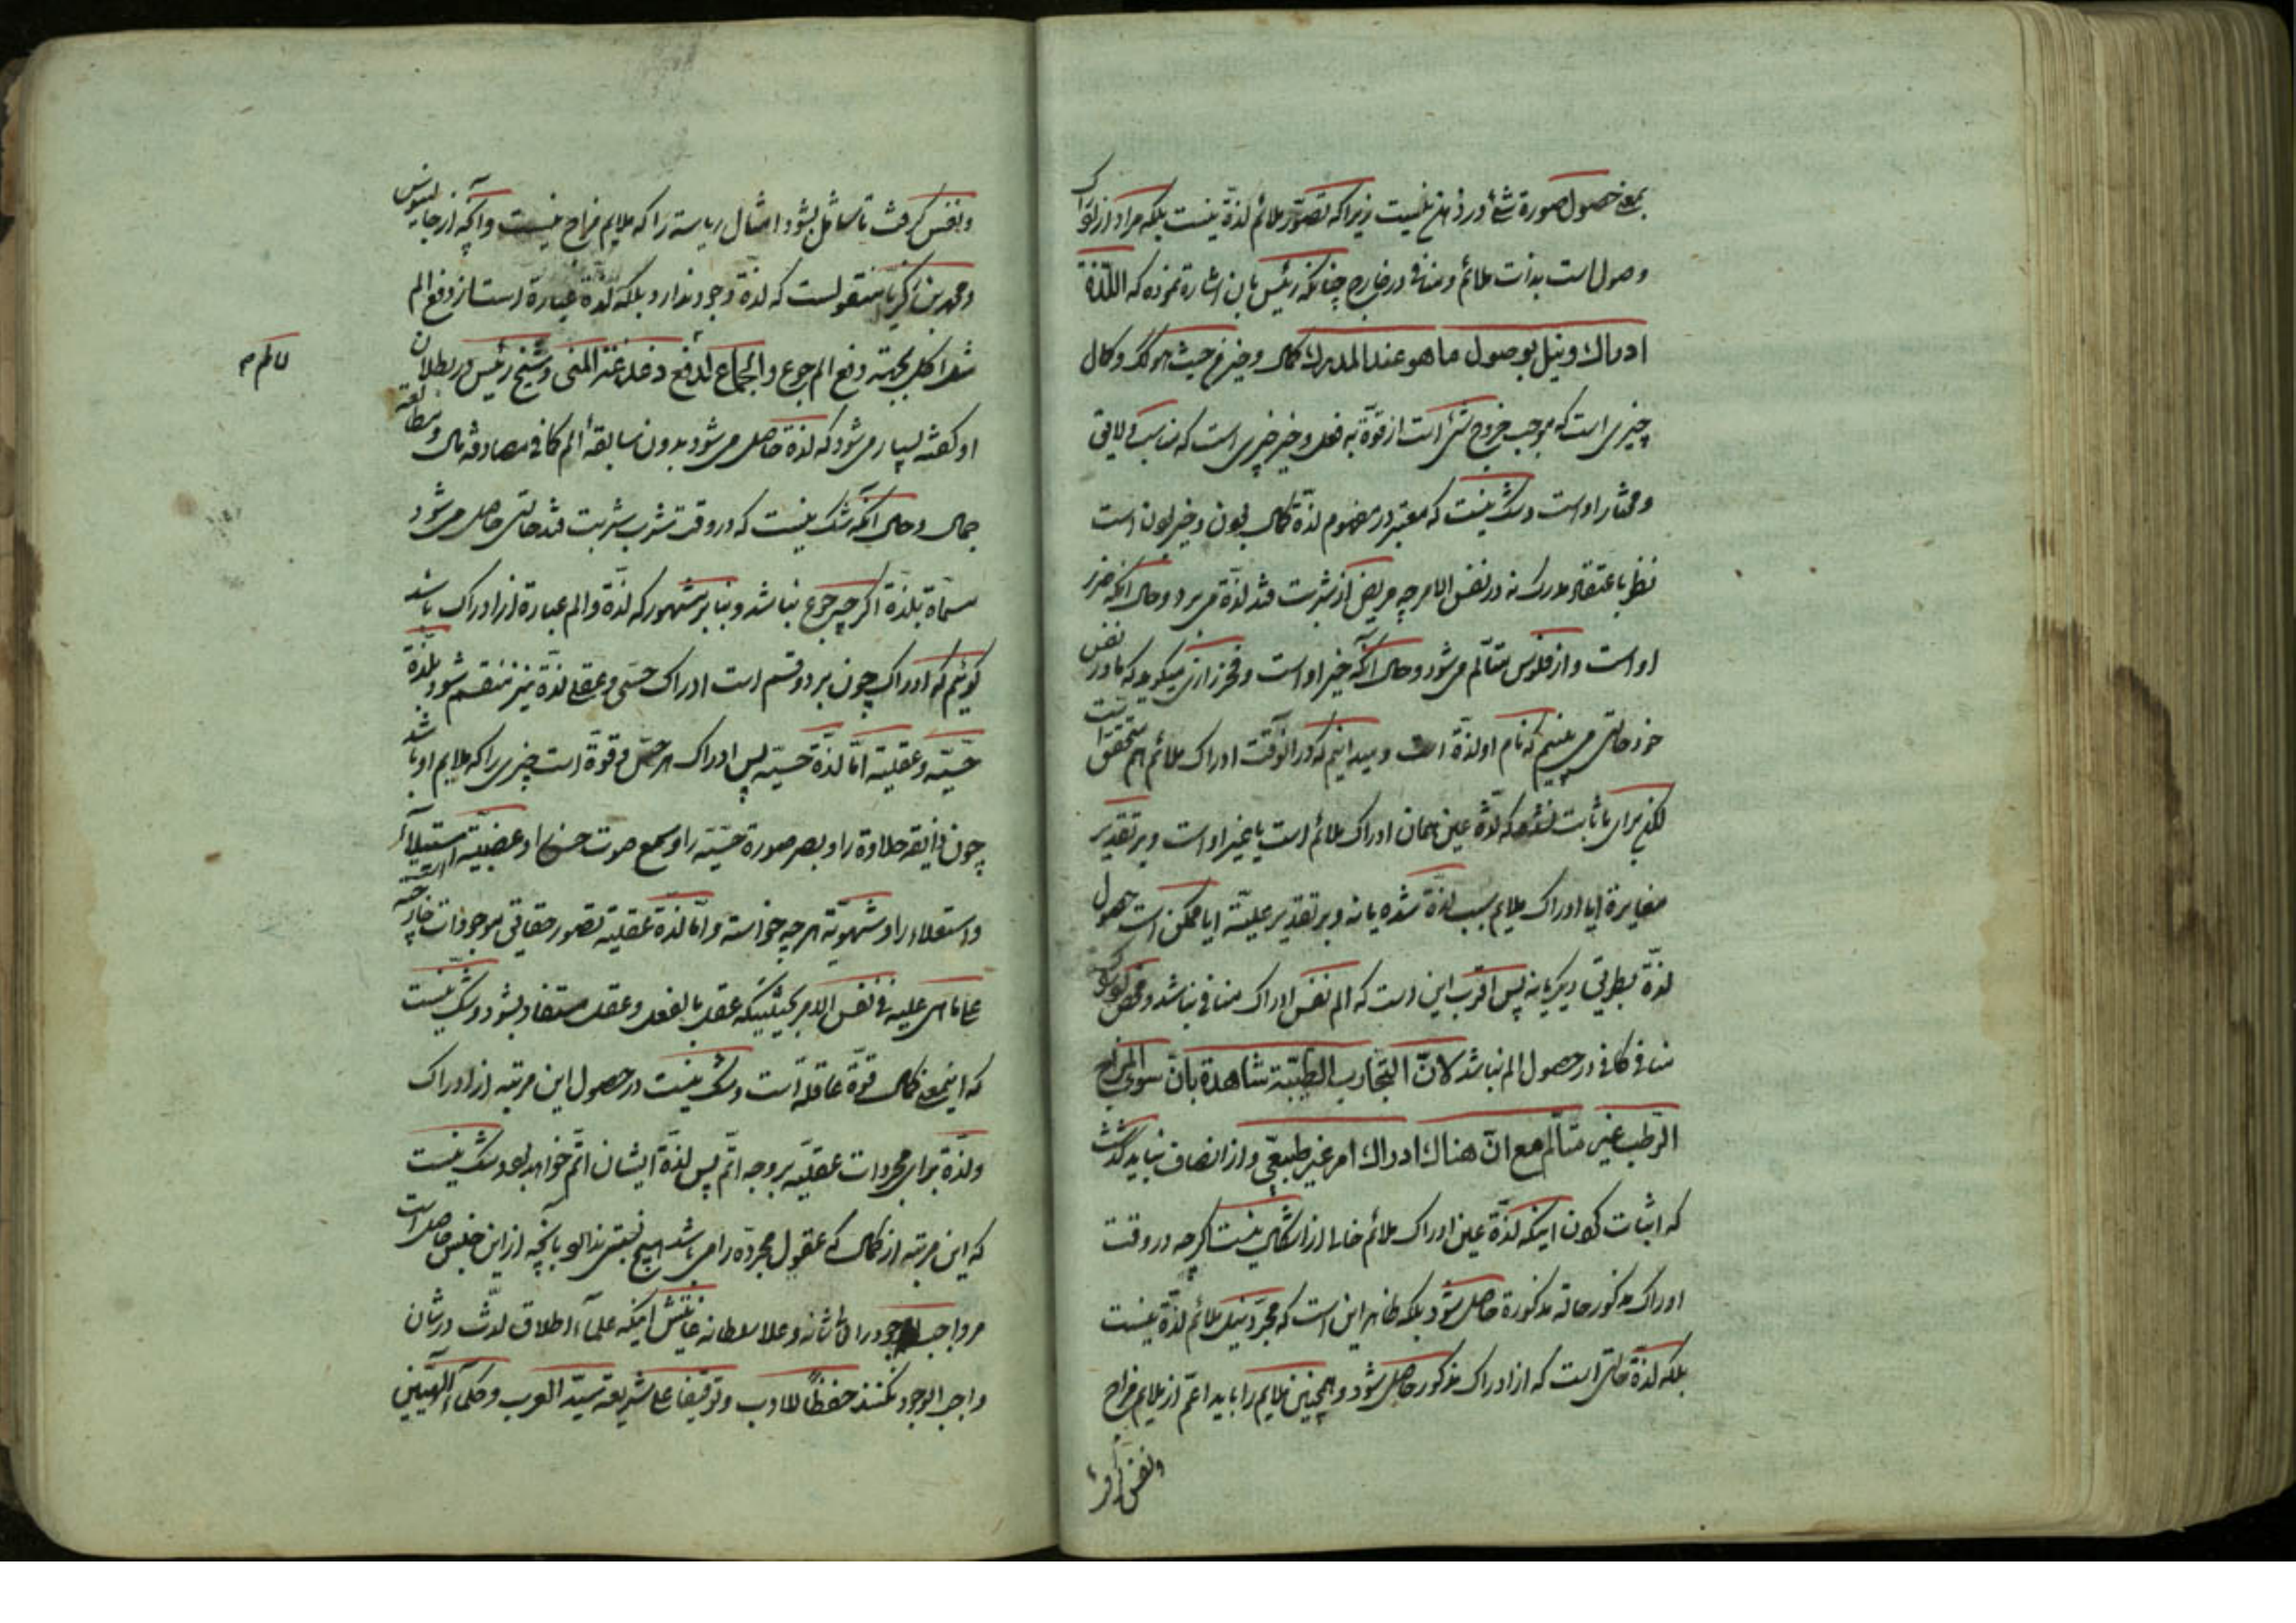 بمعنی حصول صورة شئ در ذهن نیست زیرا که تصور ملائم لذة نیست بلکه مراد از ادراک
وصول است بذات ملائم و منافی در خارج چنانکه رئیس بان اشارة نموده که اللذة
ادراك ونیل بوصول ماهو عند المدرك كمال وخیر من حیث هو كذلك و کمال
چیزی است که موجب خروج شئ است از قوة به فعل و خیر چیزی است که مناسب و لایق
و مختار او است و شک نیست که معتبر در مفهوم لذة کمال بودن و خیر بودن است
نظر باعتقاد مدرک نه در نفس الامر چه مریض از شربت قند لذة می برد و حال آنکه ضرر
او است و از فلوس متألم می شود و حال آنکه خیر او است و فخر رازی میگوید که ما در نفس
خود حالتی می بینیم که نام او لذة است و میدانیم که در آنوقت ادراک ملائم هم متحقق است
لکن برای ما ثابت نشده که لذة عین همان ادراک ملائم است یا غیر او است و بر تقدیر
مغایرة ایا ادراک ملایم سبب لذة شده یا نه و بر تقدیر علیة ایا ممکن است حصول
لذة بطریق دیگر یا نه پس اقرب این است که الم نفس ادراک منافی نباشد و محض
منافی کافی در حصول الم نباشد لان التجارب الطبیة شاهدة بان سوء المزاج
الرطب غیر متألم مع ان هناك ادراك امر غیر طبیعی و از انصاف نباید گذشت
که اثبات کردن اینکه لذة عین ادراک ملائم خالی از اشکال نیست اگر چه در وقت
ادراک مذکور حالة مذکورة حاصل شود بلکه ظاهر این است که مجرد نیل ملائم لذة نیست
بلکه لذة حالتی است که از ادراک مذکور حاصل شود و همچنین ملایم را باید اعم از ملایم مزاج
و نفس گرفت
و نفس گرفت تا شامل بشود امثال ریاسة را که ملایم مزاج نیست و آنچه از جالینوس
و محمد بن زکریا منقولست که لذة وجود ندارد بلکه لذة عبارة است از دفع الم
مثلا اکل بجهة دفع الم جوع و الجماع لدفع دغدغة المنی و شیخ رئیس در بطلان
او گفته بسیار می شود که لذة حاصل می شود بدون سابقهٔ الم کما فی مصادفة مال و مطالعهٔ
جمال و حال آنکه شک نیست که در وقت شرب شربت قند حالتی حاصل می شود
مسماة بلذة اگر چه جوع نباشد و بنابر مشهور که لذة و الم عبارة از ادراک باشد
گوئیم که ادراک چون بر دو قسم است ادراک حسی و عقلی لذة نیز منقسم شود بلذة
حسیه و عقلیة اما لذة حسیة پس ادراک هر حس و قوة است چیزی را که ملایم او باشد
چون ذایقه حلاوة را و بصر صورة حسنه را و سمع صوت حسن را و غضبیة استیلاء
و استعلاء را و شهویة هر چه خواسته و اما لذة عقلیة تصور حقایق موجودات خارجیه است
علی ما هی علیه فی نفس الامر بحیثیتیکه عقل بالفعل و عقل مستفاد بشود و شک نیست
که اینمعنی کمال قوة عاقله است و شک نیست در حصول این مرتبه از ادراک
و لذة برای مجردات عقلیه بر وجه اتم پس لذة ایشان اتم خواهد بود و شک نیست
که این مرتبه از کمال که عقول مجرده را می باشد هیچ نسبتی ندارد بآنچه از این جنس حاصل است
مر واجب الوجود را شانه و علا سلطانه غایتش اینکه علماء اطلاق لذت در شان
واجب الوجود نکنند حفظا للادب و توقیفا علی شریعة سید العرب و حکماء الهیین